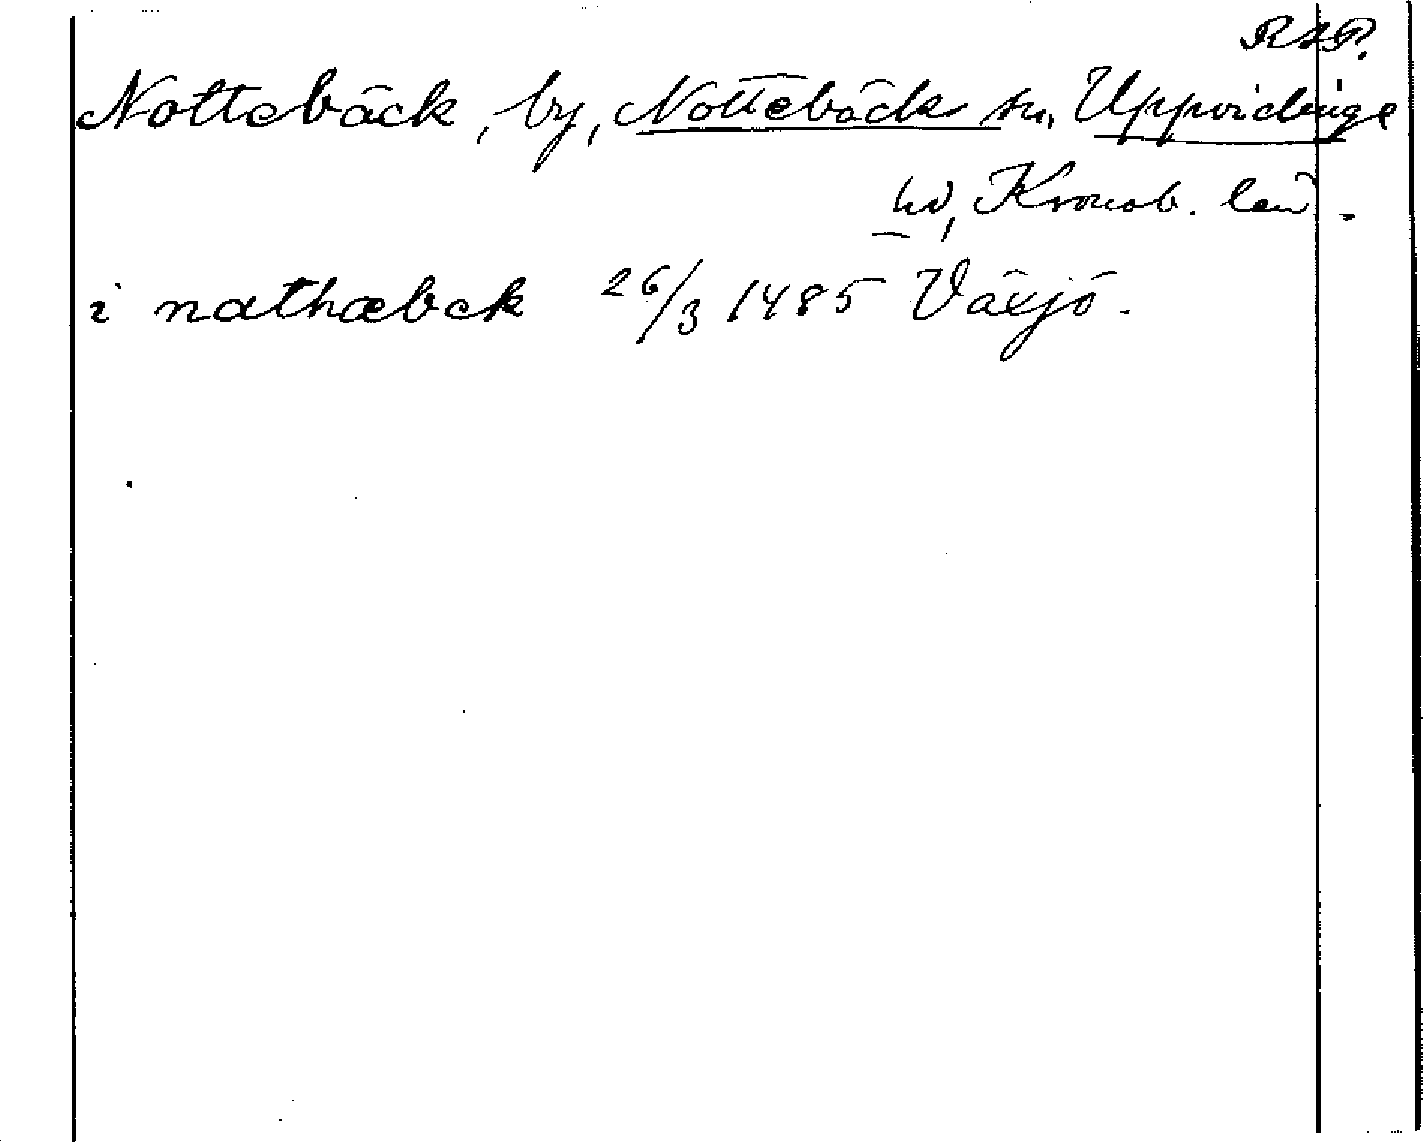 RAP.
Nottebäck, by, Nottebäck sn, Uppvidinge
hd, Kronob. län.
i nathæbek 26/3 1485 Växjö.